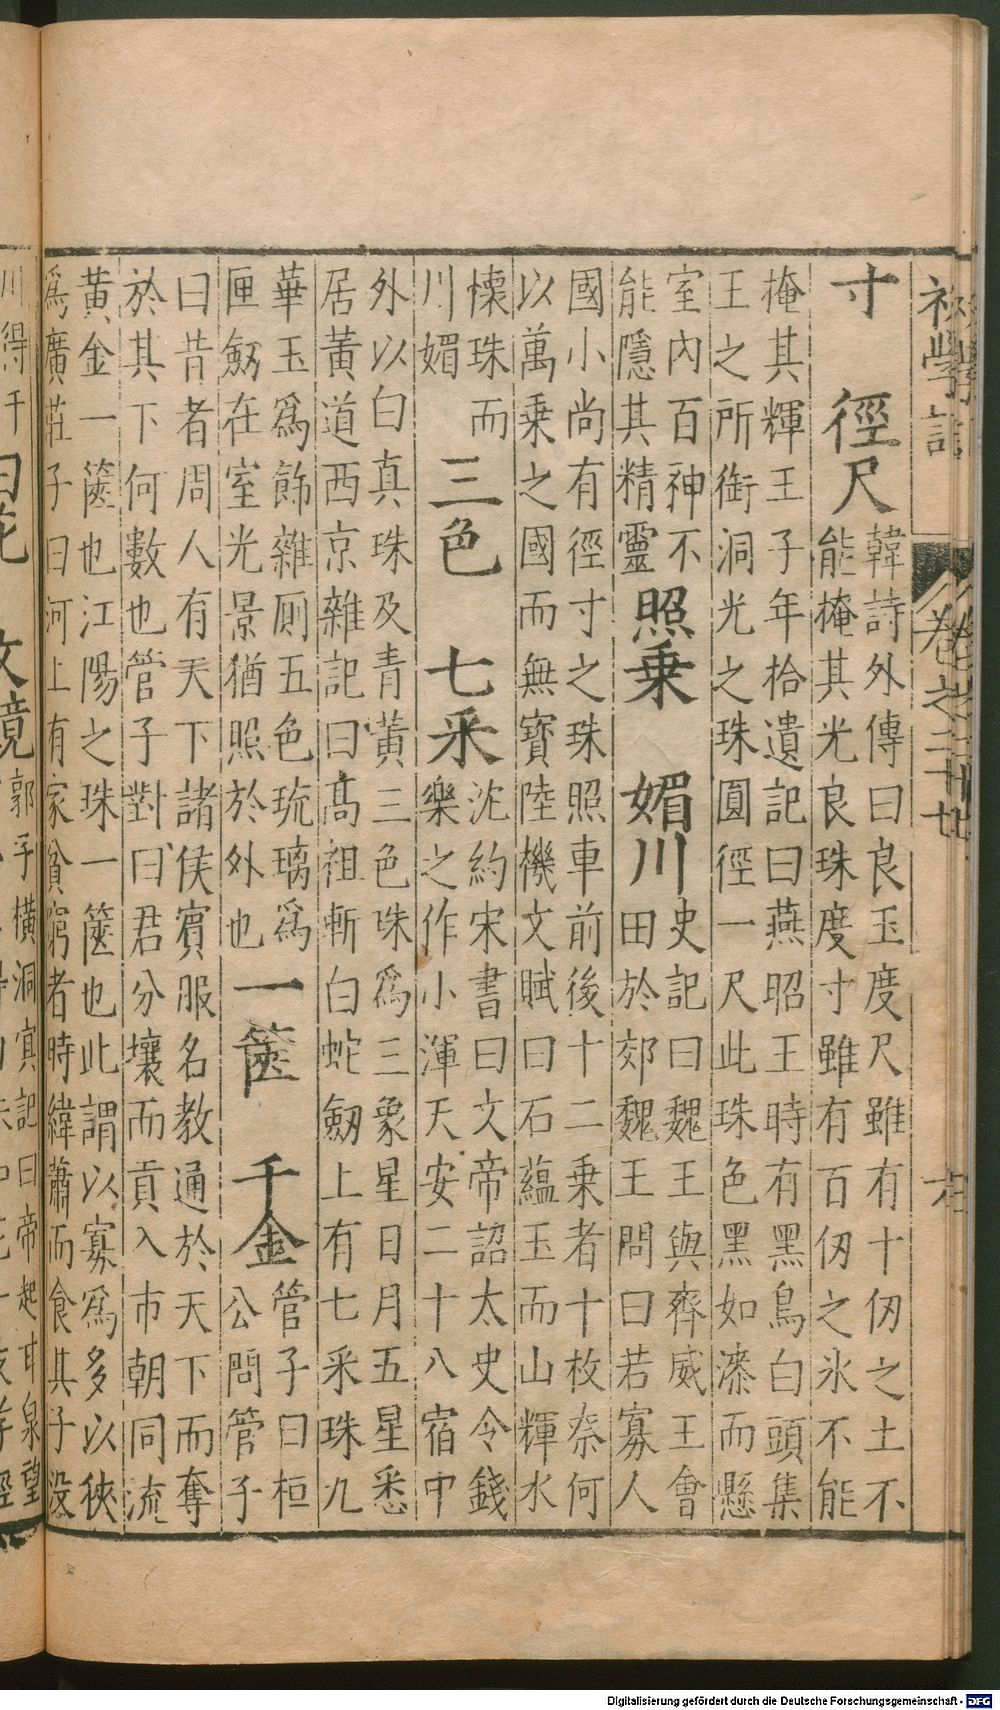 初學記 卷之二十七
寸 徑尺 韓詩外傳曰良玉度尺雖有十仞之土不
能掩其光良珠度寸雖有百仞之氷不能
掩其輝王子年拾遺記曰燕昭王時有黑鳥白頭集
王之所銜洞光之珠圓徑一尺此珠色黑如漆而懸
室內百神不
能隱其精靈 照乗 媚川 史記曰魏王與齊威王會
田於郊魏王問曰若寡人
國小尚有徑寸之珠照車前後十二乗者十枚奈何
以萬乗之國而無寳陸機文賦曰石蘊玉而山輝水
懷珠而
川媚 三色 七采 沈約宋書曰文帝詔太史令錢
樂之作小渾天安二十八宿中
外以白真珠及青黃三色珠爲三象星日月五星悉
居黃道西京雜記曰髙祖斬白蛇劒上有七采珠九
華玉爲飾雜厠五色琉璃爲
匣劒在室光景猶照於外也 一篋 千金 管子曰桓
公問管子
曰昔者周人有天下諸侯賓服名教通於天下而奪
於其下何數也管子對曰君分壤而貢入市朝同流
黃金一篋也江陽之珠一篋也此謂以寡爲多以狹
爲廣莊子曰河上有家貧窮者時緯蕭而食其子没
郭子橫洞冥記曰帝起甘泉望
川得千
Digitalisierung gefördert durch die Deutsche Forschungsgemeinschaft - DFG